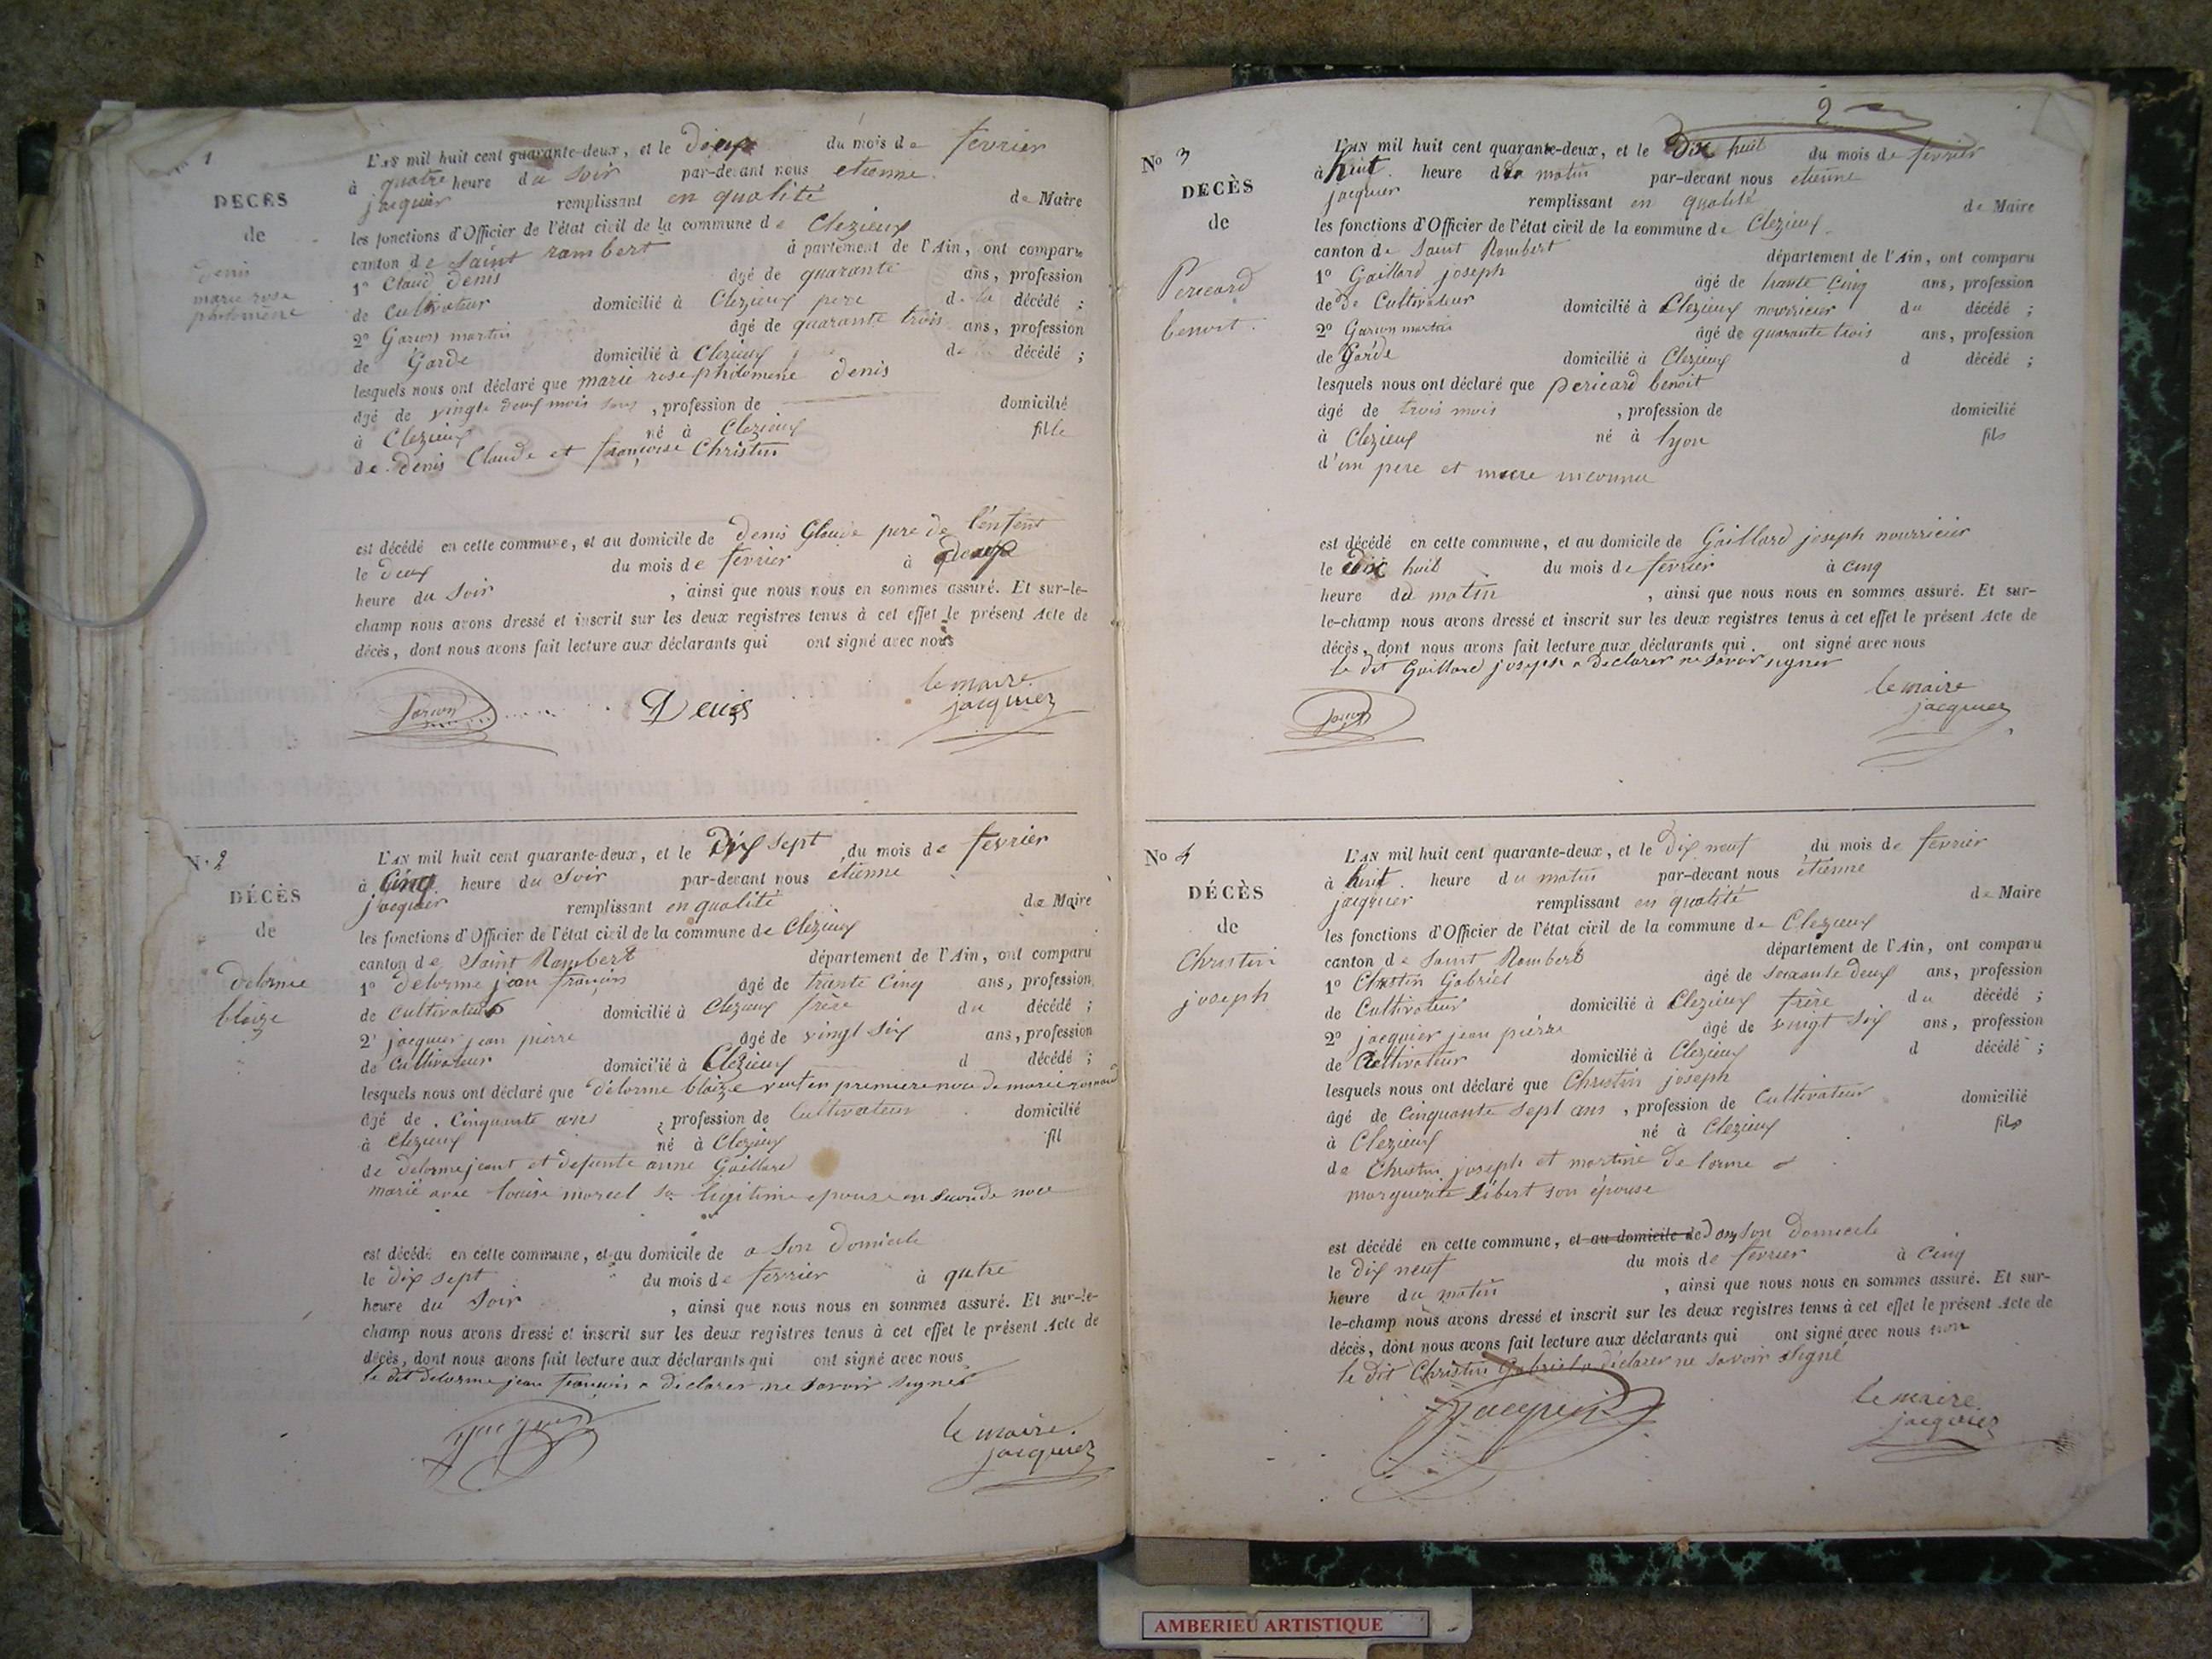 1
DECES
de
denis
marie rose
philomene
L'AN mil huit cent quarante-deux, et le deux du mois de fevrier
à quatre heure du soir par-devant nous etienne
jacquier remplissant en qualité de Maire
les fonctions d'Officier de l'état civil de la commune de Clezieux
canton de Saint rambert département de l'Ain, ont comparu
1º Claud denis âgé de quarante ans, profession
de Cultivateur domicilié à Clezieux pere de la décédé ;
2º Garson martin âgé de quarante trois ans, profession
de Garde domicilié à Clezieux de décédé ;
lesquels nous ont déclaré que marie rose philomene denis
âgé de vingts deux mois , profession de domicilié
à Clezieux né à Clezieux fille
de denis Claude et françoise Christin
est décédé en cette commune, et au domicile de denis Glaude pere de l'enfent
le deux du mois de fevrier à deux
heure du Soir , ainsi que nous nous en sommes assuré. Et sur-le-
champ nous avons dressé et inscrit sur les deux registres tenus à cet effet le présent Acte de
décès, dont nous avons fait lecture aux déclarants qui ont signé avec nous
Garson Denis le maire
jacquier
Nº 2
DÉCÈS
de
delorme
blaize
L'AN mil huit cent quarante-deux, et le Dix sept du mois de fevrier
à Cinq heure du Soir par-devant nous etienne
jacquier remplissant en qualité de Maire
les fonctions d'Officier de l'état civil de la commune de Clezieux
canton de Saint Rambert département de l'Ain, ont comparu
1º delorme jean françois âgé de trante Cinq ans, profession
de Cultivateur domicilié à Clezieux frère du décédé ;
2º jacquier jean pierre âgé de vingt Six ans, profession
de Cultivateur domicilié à Clezieux d décédé ;
lesquels nous ont déclaré que délorme blaize veuf en premiere noce de marie
âgé de Cinquante ans , profession de Cultivateur domicilié
à Clezieux né à Clezieux fil
de delorme jeant et defunte anne Gaillard
marié avec louise marcel sa legitime epouse en seconde noce
est décédé en cette commune, et au domicile de a Son domicile
le dix sept du mois de fevrier à qutre
heure du Soir , ainsi que nous nous en sommes assuré. Et sur-le-
champ nous avons dressé et inscrit sur les deux registres tenus à cet effet le présent Acte de
décès, dont nous avons fait lecture aux déclarants qui ont signé avec nous
le dit delorme jean francois a declarer ne savoir signer
jacquier le maire
jacquier
2
Nº 3
DECÈS
de
Pericard
benoit
L'AN mil huit cent quarante-deux, et le Dix huit du mois de fevrier
à huit heure du matin par-devant nous etienne
jacquier remplissant en qualité de Maire
les fonctions d'Officier de l'état civil de la commune de Clezieux
canton de Saint Rambert département de l'Ain, ont comparu
1º Gaillard joseph âgé de trante Cinq ans, profession
de De Cultivateur domicilié à Clezieux nourricier du décédé ;
2º Garson martin âgé de quarante trois ans, profession
de Garde domicilié à Clezieux d décédé ;
lesquels nous ont déclaré que pericard benoit
âgé de trois mois , profession de domicilié
à Clezieux né à lyon fils
d'un pere et mere inconnu
est décédé en cette commune, et au domicile de Gaillard joseph nourricier
le dix huit du mois de fevrier à cinq
heure du matin , ainsi que nous nous en sommes assuré. Et sur-
le-champ nous avons dressé et inscrit sur les deux registres tenus à cet effet le présent Acte de
décès, dont nous avons fait lecture aux déclarants qui ont signé avec nous
le dit Gaillard joseph a declarer ne savoir signer
Garson le maire
jacquier
Nº 4
DÉCÈS
de
Christin
joseph
L'AN mil huit cent quarante-deux, et le dix neuf du mois de fevrier
à huit heure du matin par-devant nous étienne
jacquier remplissant en qualité de Maire
les fonctions d'Officier de l'état civil de la commune de Clezieux
canton de Saint Rambert département de l'Ain, ont comparu
1º Christin Gabriel âgé de soixante deux ans, profession
de Cultivateur domicilié à Clezieux frère du décédé ;
2º jacquier jean pierre âgé de vingt Six ans, profession
de Cultivateur domicilié à Clezieux d décédé ;
lesquels nous ont déclaré que Christin joseph
âgé de Cinquante Sept ans , profession de Cultivateur domicilié
à Clezieux né à Clezieux fils
de Christin joseph et martine de lorme
marguerite libert son épouse
est décédé en cette commune, et au domicile de Dans Son Domicile
le dix neuf du mois de fevrier à Cinq
heure du matin , ainsi que nous nous en sommes assuré. Et sur-
le-champ nous avons dressé et inscrit sur les deux registres tenus à cet effet le présent Acte de
décès, dont nous avons fait lecture aux déclarants qui ont signé avec nous non
le dit Christin Gabriel a declarer ne savoir Signé
jacquier le maire
jacquier
AMBERIEU ARTISTIQUE